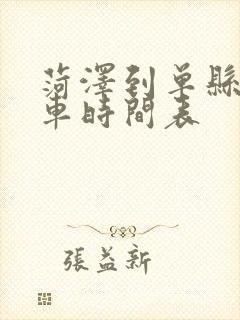 菏澤到單縣
車時間表
張益新